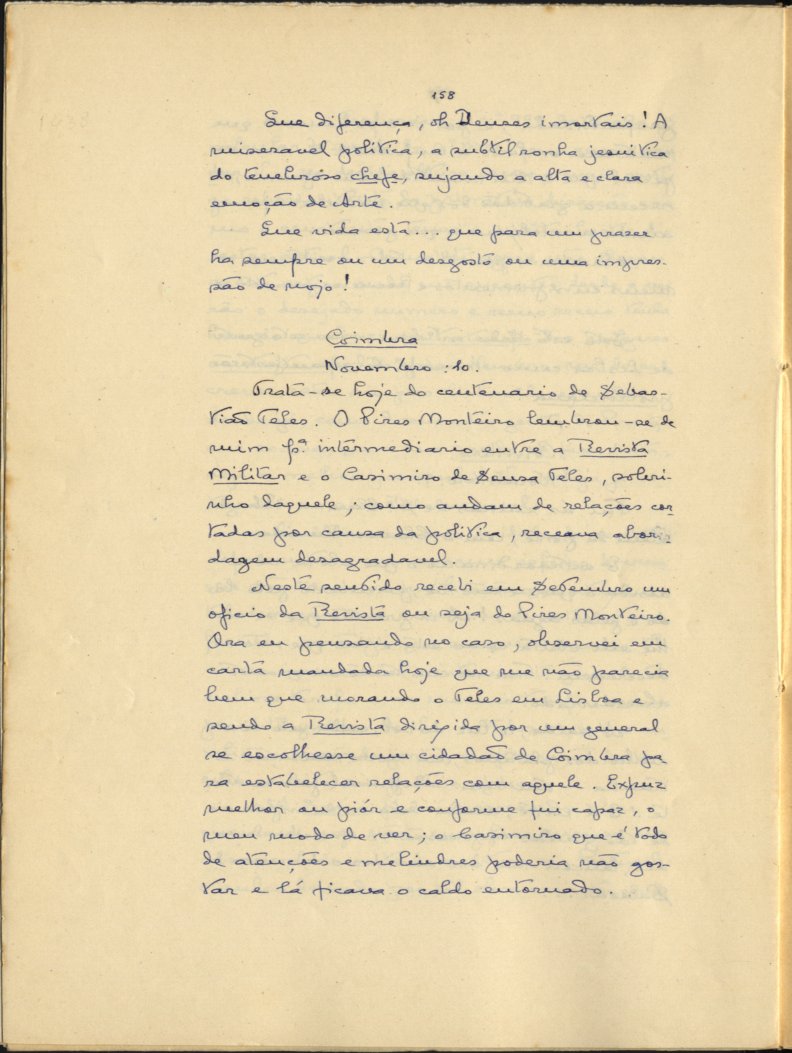 158
Que diferença, oh Deuses imortais! A
miseravel politica, a subtil ronha jesuitica
do tenebroso chefe, sujando a alta e clara
emoção de Arte.
Que vida esta... que para um prazer
ha sempre ou um desgosto ou uma impres-
são de nojo!
Coimbra
Novembro: 10.
Trata-se hoje do centenario de Sebas-
tião Teles. O Pires Monteiro lembrou-se de
mim pª. intermediario entre a Revista
Militar e o Casimiro de Sousa Teles, sobri-
nho daquele; como andam de relações cor-
tadas por causa da politica, receava abor-
dagem desagradavel.
Neste sentido recebi em Setembro um
oficio da Revista ou seja do Pires Monteiro.
Ora eu pensando no caso, observei em
carta mandada hoje que me não parecia
bem que morando o Teles em Lisboa e
sendo a Revista dirigida por um general
se escolhesse um cidadão de Coimbra pa-
ra estabelecer relações com aquele. Expuz
melhor ou piór e conforme fui capaz, o
meu modo de ver; o Casimiro que é todo
de atenções e melindres poderia não gos-
tar e lá ficava o caldo entornado.